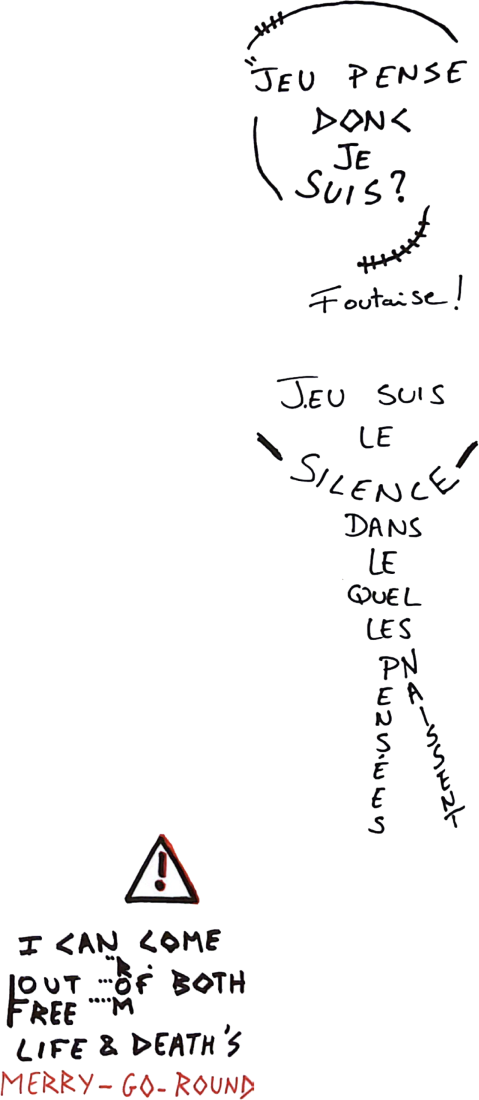 "JEU PENSE
DONC
JE
SUIS?
Foutaise!
JEU SUIS
LE
SILENCE
DANS
LE
QUEL
LES
PENSÉES
NAISSENT
!
I CAN COME
OUT OF BOTH
FREE M
LIFE & DEATH'S
MERRY-GO-ROUND